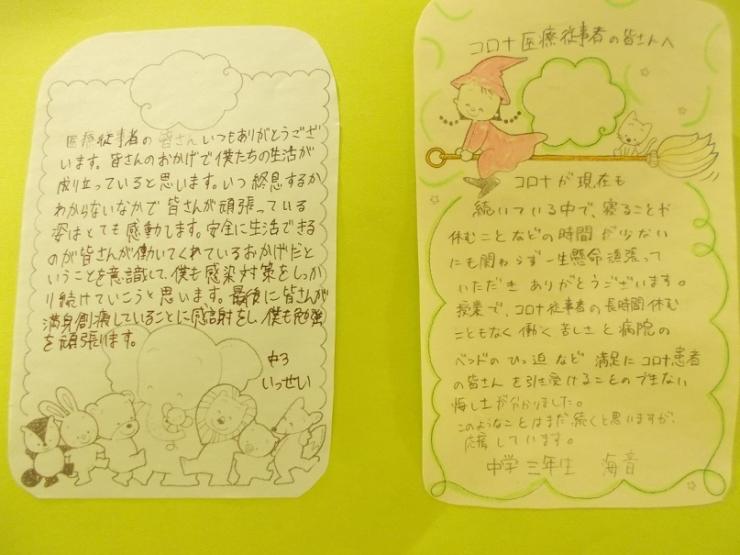 医療従事者の皆さんいつもありがとうござ
います。皆さんのおかげで僕たちの生活が
成り立っていると思います。いつ終息するか
わからないなかで皆さんが頑張っている
姿はとても感動します。安全に生活できる
のが皆さんが働いてくれているおかげだと
いうことを意識して、僕も感染対策をしっか
り続けていこうと思います。最後に皆さんが
満身創痍していることに感謝をし、僕も勉強
を頑張ります。
中3
いっせい
コロナ医療従事者の皆さんへ
コロナが現在も
続いている中で、寝ることや
休むことなどの時間が少ない
にも関わらず一生懸命頑張って
いただきありがとうございます。
授業で、コロナ従事者の長時間休む
こともなく働く苦しさと病院の
ベッドのひっ迫など満足にコロナ患者
の皆さんを引き受けることのできない
悔しさが分かりました。
このようなことはまだ続くと思いますが、
応援しています。
中学三年生 海音